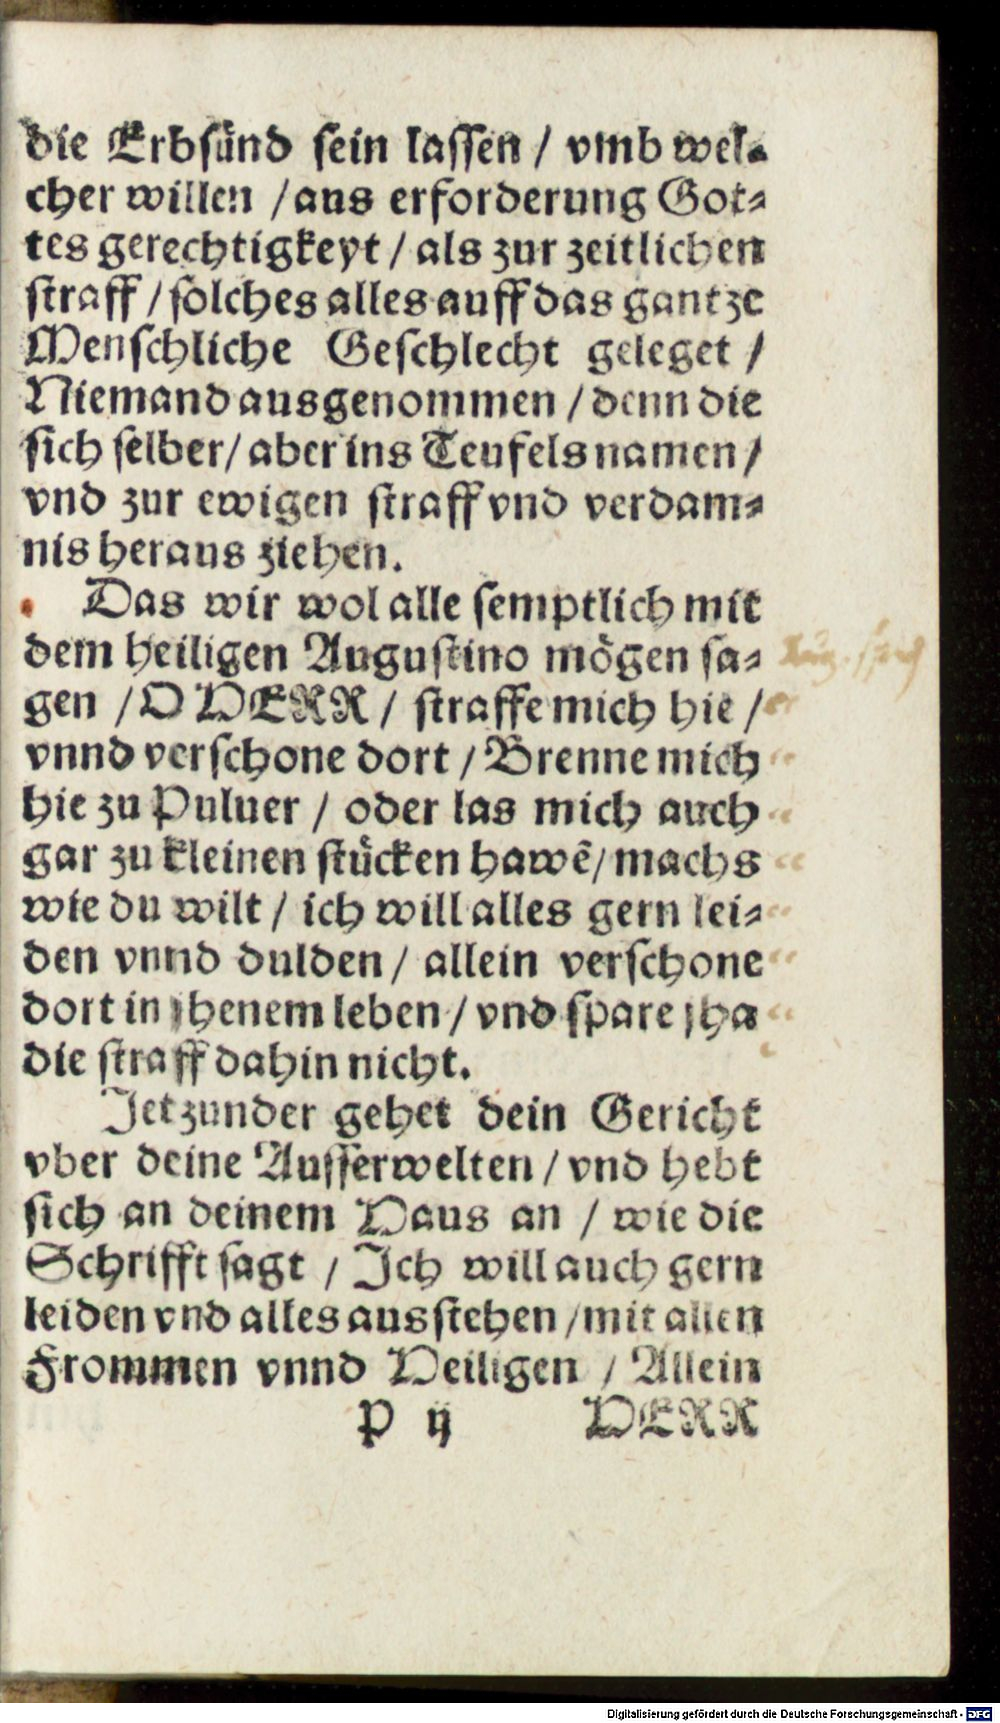 die Erbsünd sein lassen / vmb wel-
cher willen / aus erforderung Got-
tes gerechtigkeyt / als zur zeitlichen
straff / solches alles auff das gantze
Menschliche Geschlecht geleget /
Niemand ausgenommen / denn die
sich selber / aber ins Teufels namen /
vnd zur ewigen straff vnd verdam-
nis heraus ziehen.
Das wir wol alle semptlich mit
dem heiligen Augustino mögen sa-
gen / O HERR / straffe mich hie /
vnnd verschone dort / Brenne mich
hie zu Puluer / oder las mich auch
gar zu kleinen stücken hawẽ / machs
wie du wilt / ich will alles gern lei-
den vnnd dulden / allein verschone
dort in jhenem leben / vnd spare jha
die straff dahin nicht.
Jetzunder gehet dein Gericht
vber deine Ausserwelten / vnd hebt
sich an deinem Haus an / wie die
Schrifft sagt / Ich will auch gern
leiden vnd alles ausstehen / mit allen
Frommen vnnd Heiligen / Allein
P ij HERR
Digitalisierung gefördert durch die Deutsche Forschungsgemeinschaft - DFG